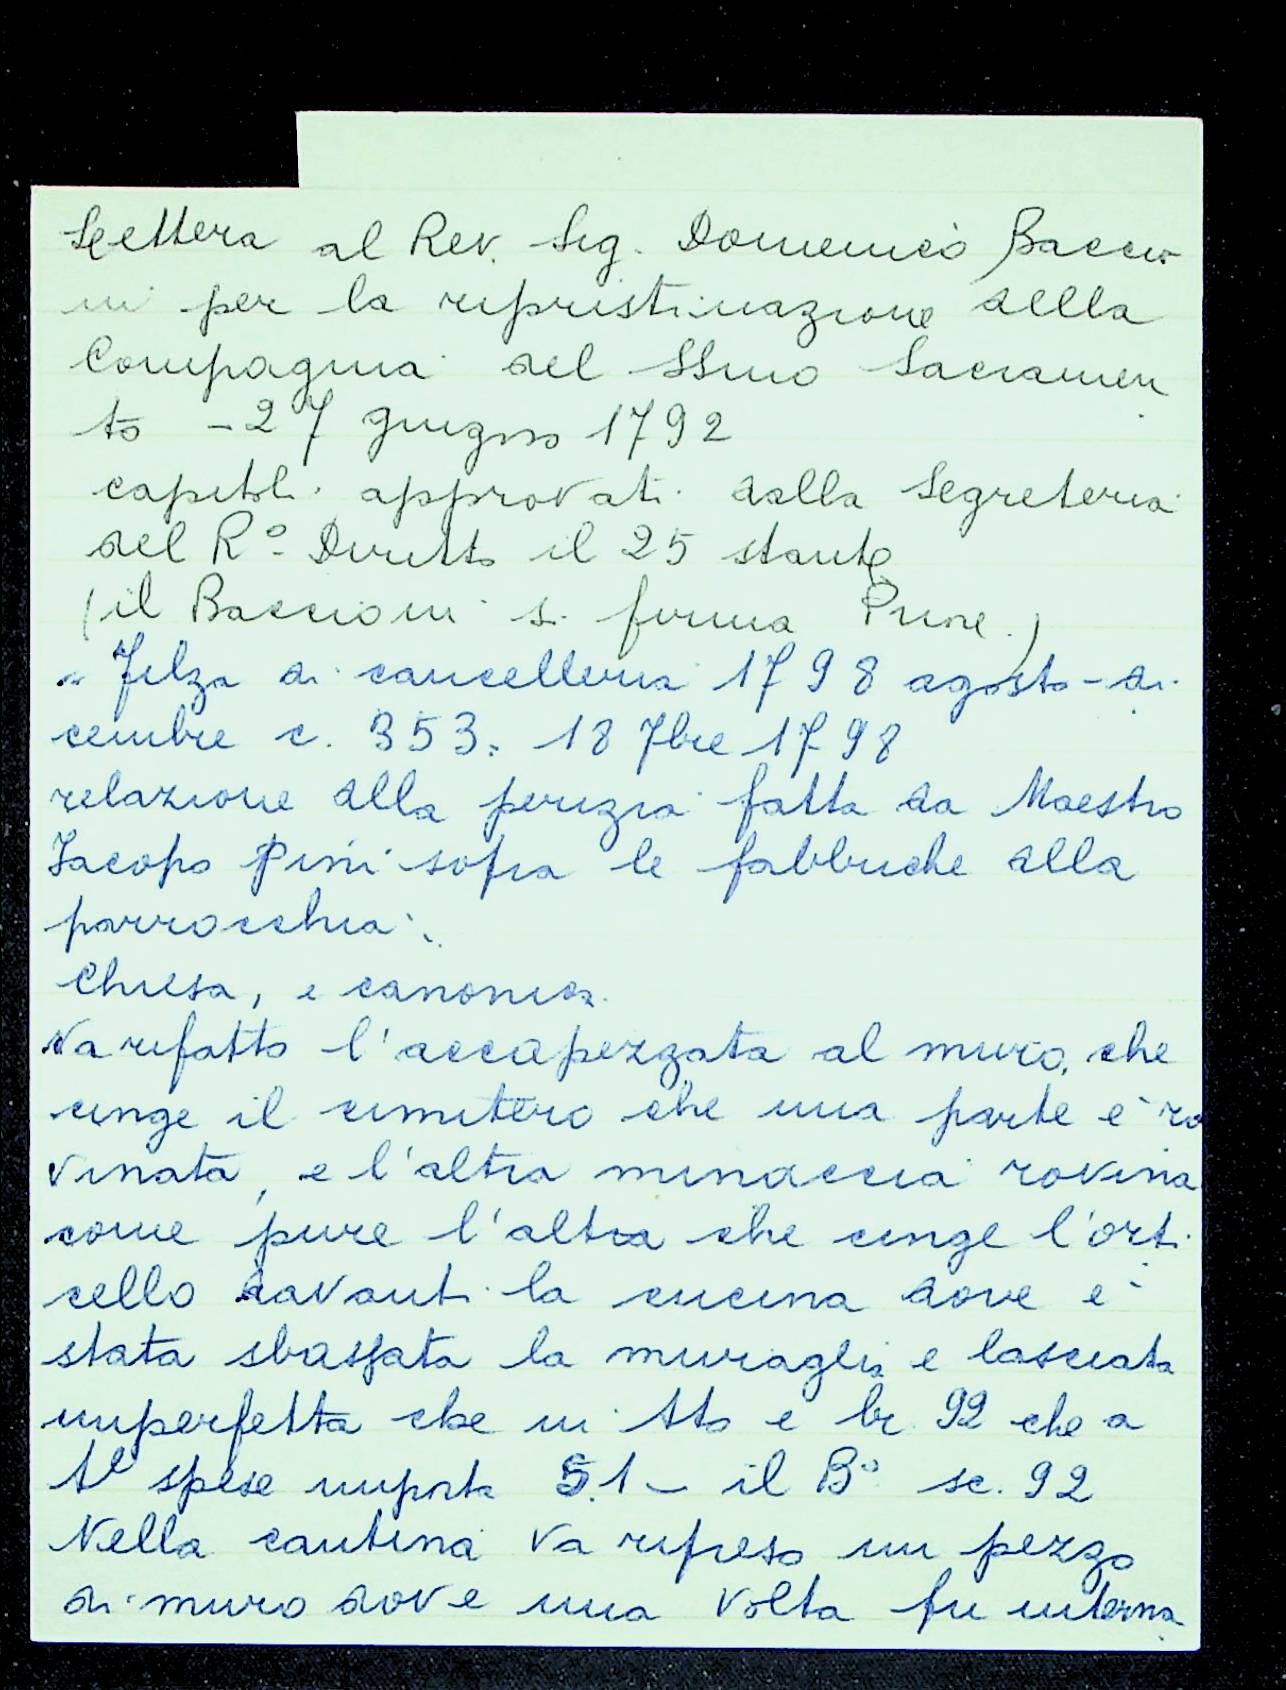 Lettera al Rev. Sig. Domenico Baccio
ni per la ripristinazione della
Compagnia del SSmo Sacramen
to - 27 giugno 1792
capitoli approvati dalla Segreteria
del R° Diritto il 25 stante
(il Baccioni si firma Priore.)
" Filza di cancelleria 1798 agosto - di
cembre c. 353. 18 7bre 1798
relazione della perizia fatta da Maestro
Jacopo Pini sopra le fabbriche della
parrocchia:
Chiesa, e canonica.
Va rifatto l'accapezzata al muro, che
cinge il cimitero che una parte è ro
vinata, e l'altra minaccia rovina
come pure l'altra che cinge l'orti
cello davanti la cucina dove è
stata sbassata la muraglia e lasciata
imperfetta che in tto e br 92 che a
spese importa 5.1 - il B° sc. 92
Nella cantina va ripreso un pezzo
di muro dove una volta fu interna